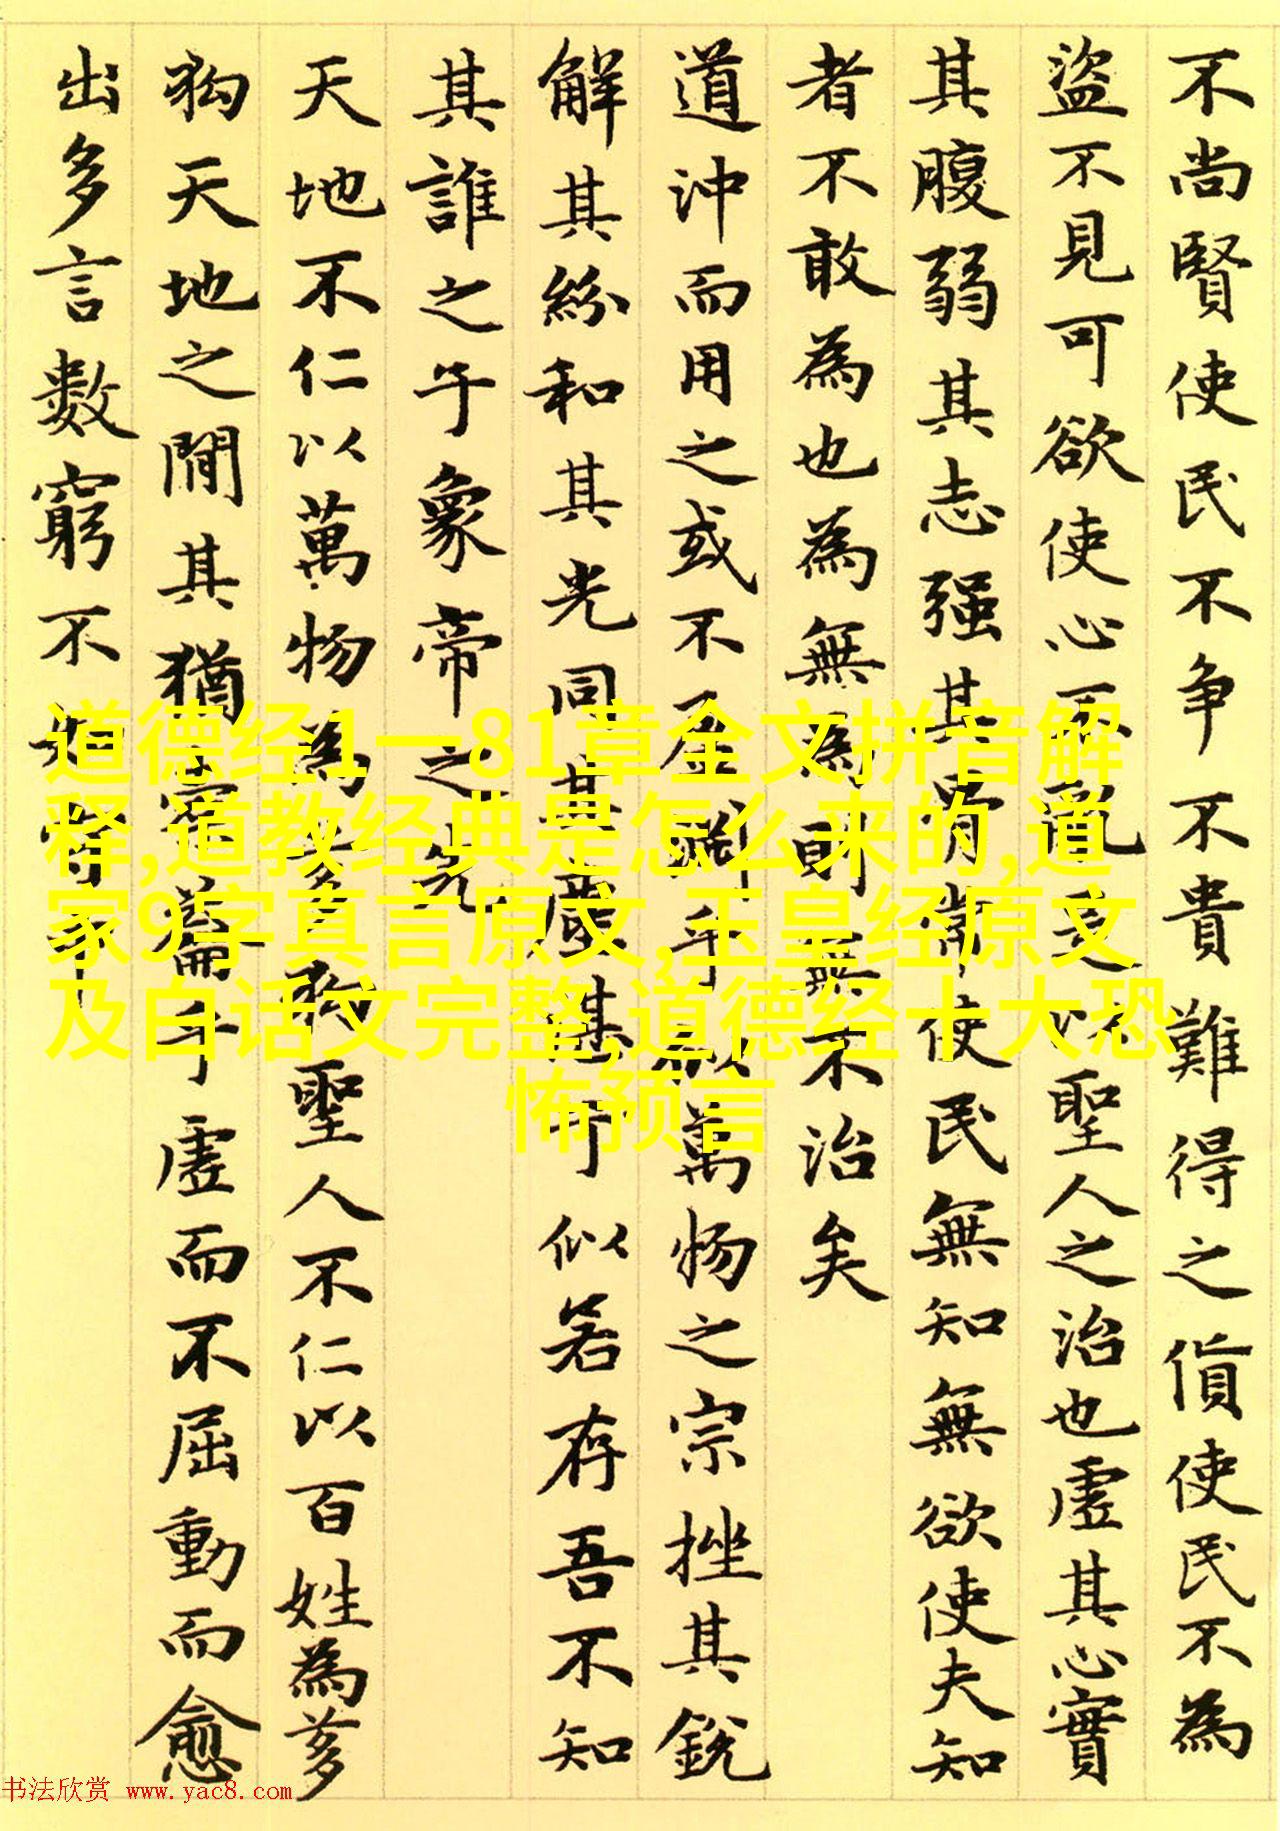 不尚賢使民不争不貴難得之貨使民不為
盜不見可欲使心不亂是以聖人之治也虛其心實
其腹弱其志强其骨常使民無知無欲使夫知
者不敢為也為無為則無不治矣
道沖而用之或不盈淵乎似萬物之宗挫其銳
解其紛和其光同其塵湛乎似若存吾不知
其誰之子象帝之先
天地不仁以萬物為芻狗聖人不仁以百姓為芻
狗天地之間其猶橐籥乎虛而不屈動而愈
出多言數窮不如守中
道德经1一81章全文拼音解
释,道教经典是怎么来的,道
家9字真言原文,玉皇经原文
及白话文完整,道德经十大恐
怖预言
书法欣赏 www.yac8.com